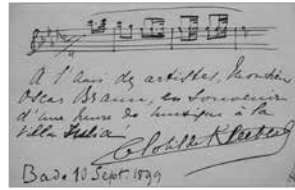 A l'ami des artistes, Monsieur
Oscar Braun, en souvenir
d'une heure de musique à la
villa Julia!
Clotilde Kleeberg
Bade 10 Sept. 1899